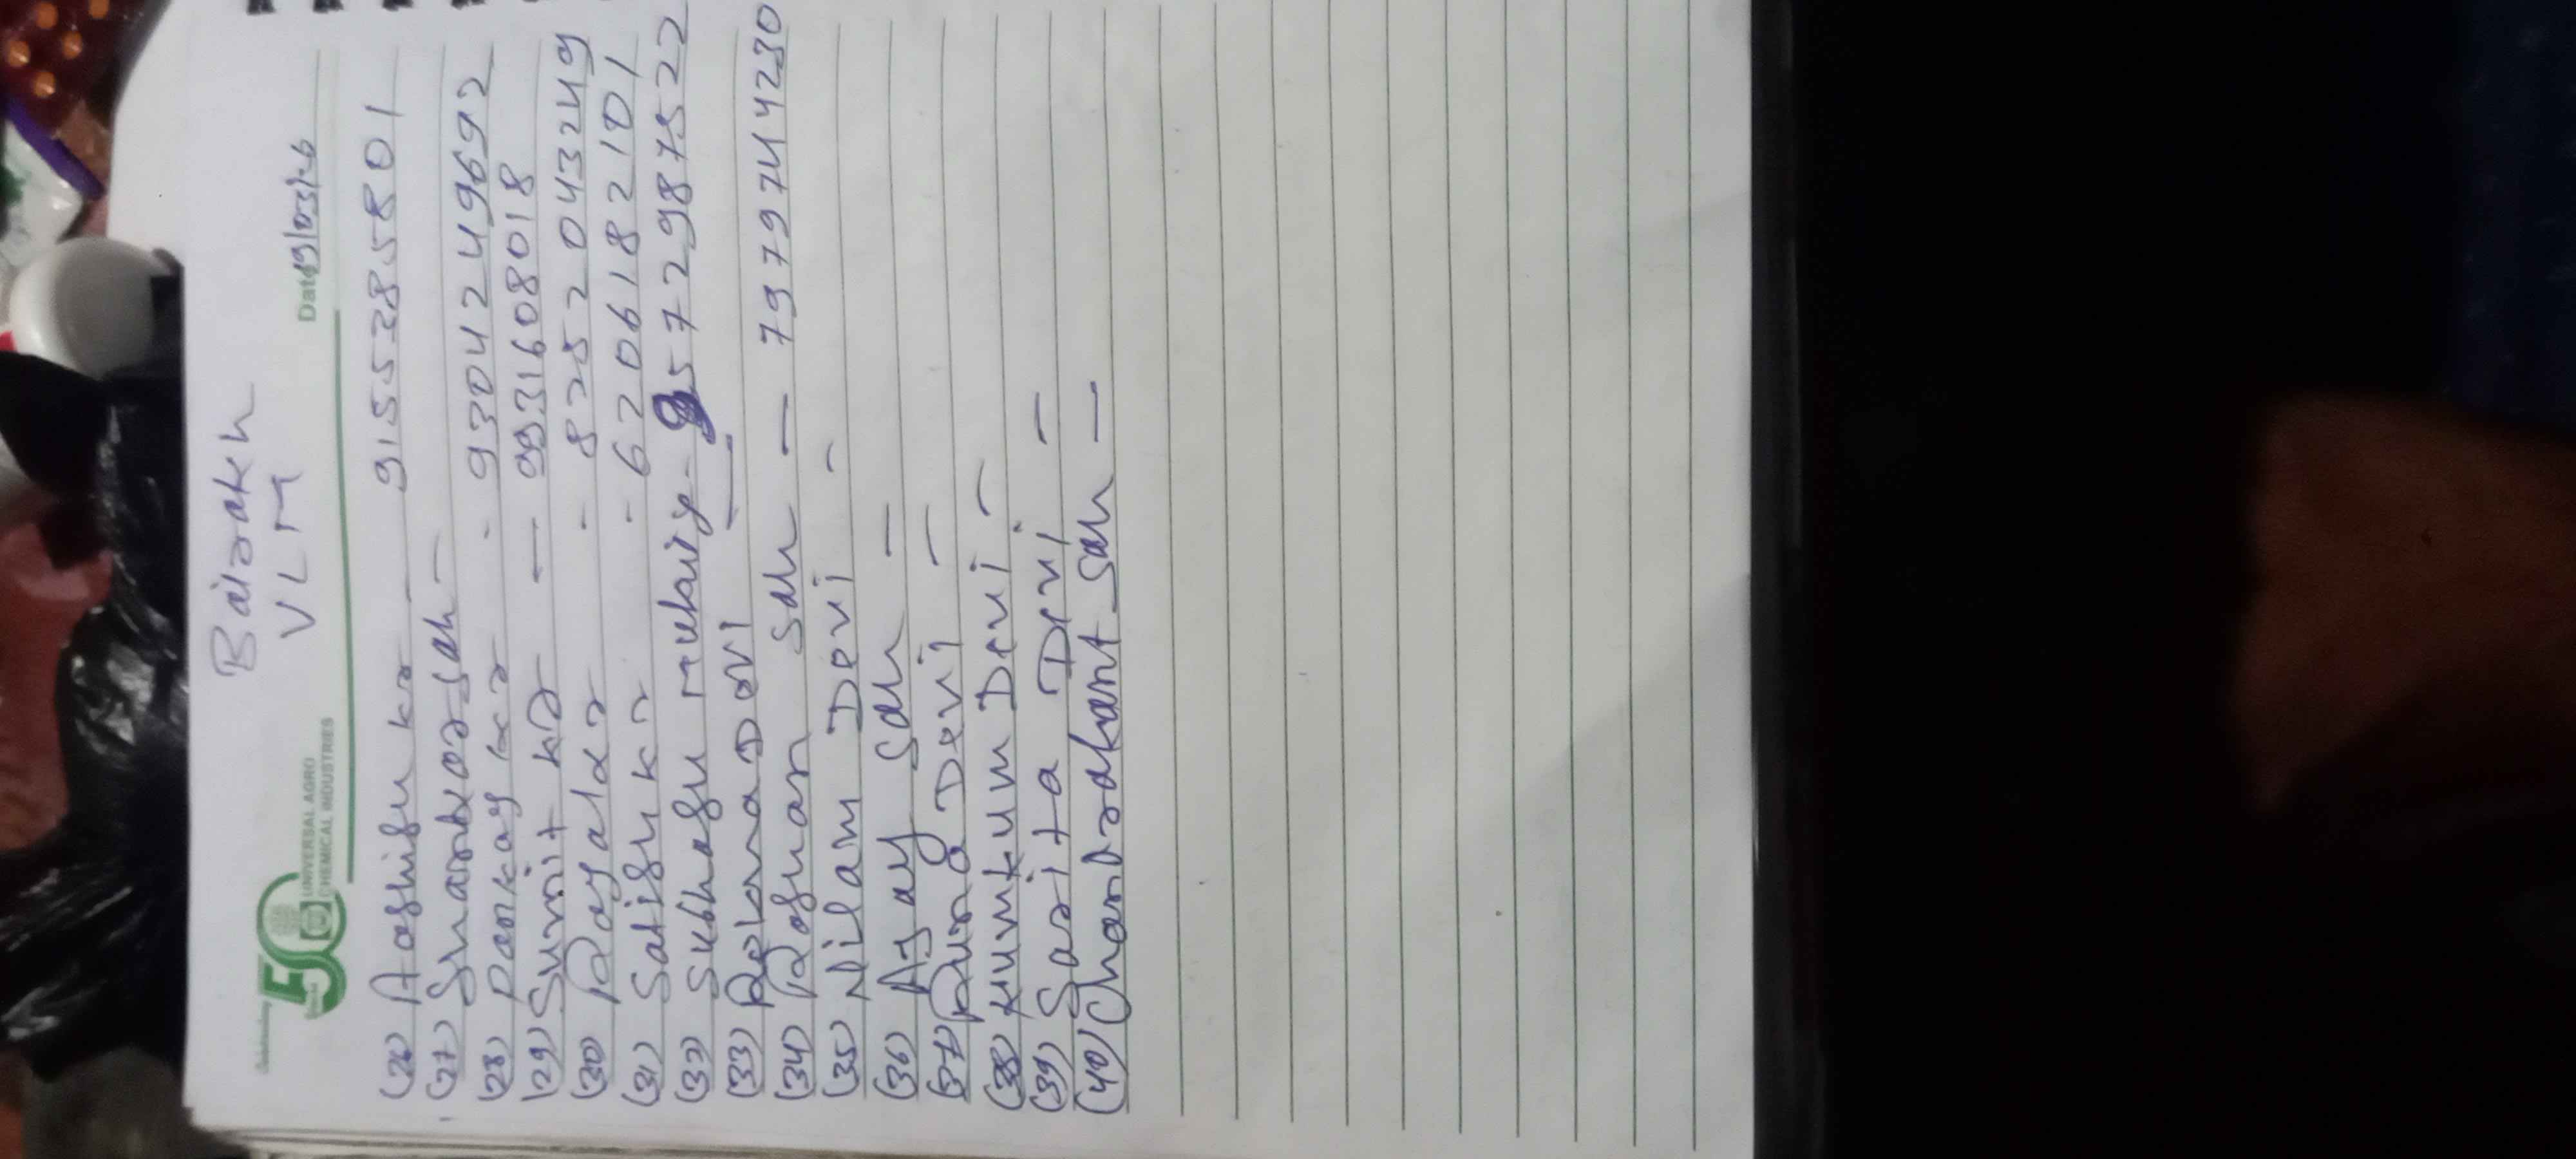 Bairakh
VLM
Celebrating
50
UNIVERSAL AGRO
CHEMICAL INDUSTRIES
Date 19/03/26
(26) Aashish kr — 9155285801
(27) Shankar sah —
(28) Pankaj kr - 9304249692
(29) Sumit kr — 9931608018
(30) - 8252043249
(31) Satish kr - 6206182101
(32) Subhash - 9572987522
(33) Devi —
(34) sah — 7979744230
(35) Nilam Devi -
(36) Ajay sah —
(37) Devi —
(38) Kumkum Devi —
(39) Sarita Devi —
(40) Chandrakant sah —